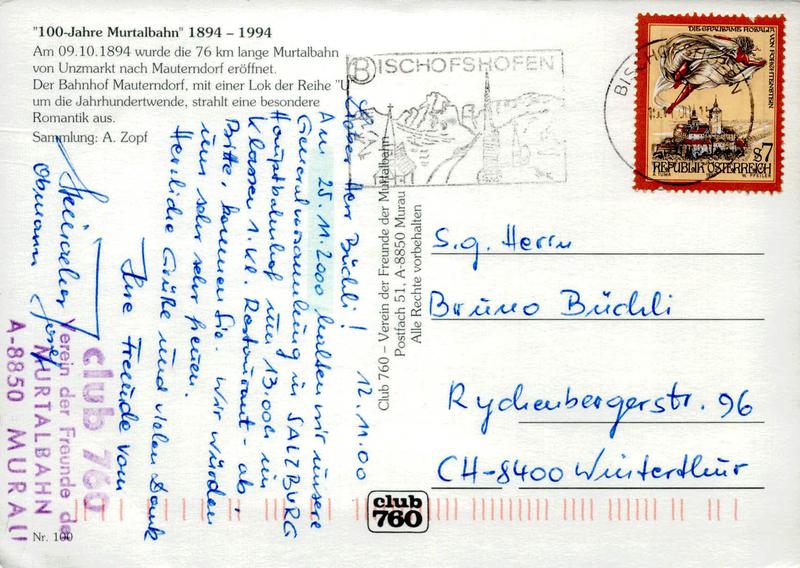 "100-Jahre Murtalbahn" 1894 – 1994
Am 09.10.1894 wurde die 76 km lange Murtalbahn
von Unzmarkt nach Mauterndorf eröffnet.
Der Bahnhof Mauterndorf, mit einer Lok der Reihe "U
um die Jahrhundertwende, strahlt eine besondere
Romantik aus.
Sammlung: A. Zopf
12.11.00
Lieber Herr Büchli!
Am 25.11.2000 halten wir unsere
Generalversammlung in SALZBURG
Hauptbahnhof um 13.00h im
Klassen 1.Kl. Restaurant - ab.
Bitte, kommen Sie. Wir würden
uns sehr sehr freuen.
Herzliche Grüße und vielen Dank
Ihre Freunde vom
club 760
Verein der Freunde der
MURTALBAHN
A-8850 MURAU
Obmann Josef
Nr. 100
Club 760 – Verein der Freunde der Murtalbahn
Postfach 51, A-8850 Murau
Alle Rechte vorbehalten
club
760
BISCHOFSHOFEN
BISCHOFSHOFEN
DIE GRAUSAME ROSALIA
VON FORCHTENSTEIN
S7
REPUBLIK ÖSTERREICH
A. TUMA
W. PFEILER
S.g. Herrn
Bruno Büchli
Rychenbergerstr. 96
CH-8400 Winterthur